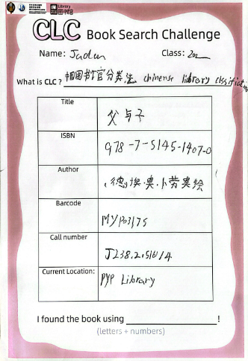 CLC Book Search Challenge
Name: Jadun Class:
What is CLC? 中国图书馆分类法 chinese library clssifiction
Title 父与子
ISBN 978-7-5145-1407-0
Author (德)埃·奥·卜劳恩绘
Barcode
Call number
Current Location: PYP Library
I found the book using !
(letters + numbers)